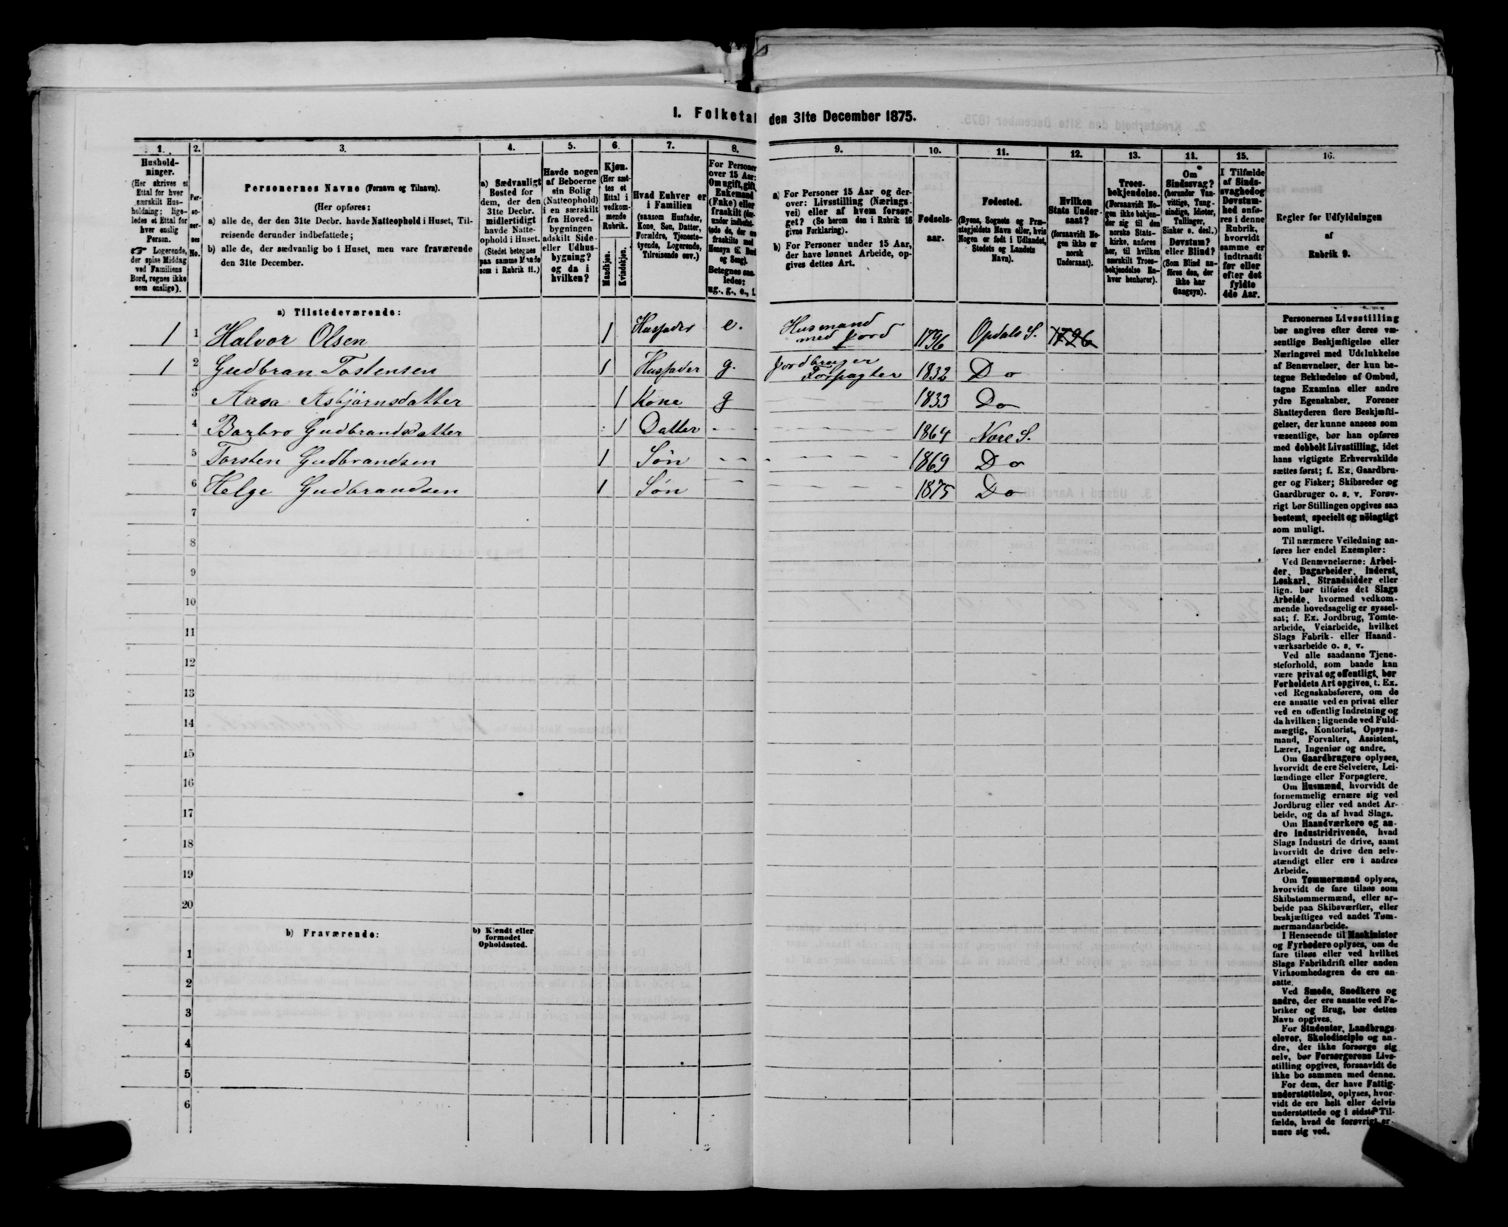 I. Folketal den 31te December 1875.
1. 2. 3. 4. 5. 6. 7. 8. 9. 10. 11. 12. 13. 14. 15. 16.
Husholdninger.
(Her skrives et Ettal for hver særskilt Husholdning; ligeledes et Ettal for hver enslig Person.
☞ Logerende, der spise Middag ved Familiens Bord, regnes ikke som enslige).
Personernes No.
Personernes Navne (Fornavn og Tilnavn).
(Her opføres:
a) alle de, der den 31te Decbr. havde Natteophold i Huset, Tilreisende derunder indbefattede;
b) alle de, der sædvanlig bo i Huset, men vare fraværende den 31te December.
a) Sædvanligt Bosted for dem, der den 31te Decbr. midlertidigt havde Natteophold i Huset.
(Stedet betegnes paa samme Maade som i Rubrik 11.)
Havde nogen af Beboerne sin Bolig (Natteophold) i en særskilt fra Hovedbygningen adskilt Side- eller Udhusbygning? og da i hvilken?
Kjøn.
(Her sættes et Ettal i vedkommende Rubrik.
Mandkjøn. Kvindekjøn.
Hvad Enhver er i Familien
(saasom Husfader, Kone, Søn, Datter, Forældre, Tjenestetyende, Logerende, Tilreisende osv.)
For Personer over 15 Aar: Om ugift, gift, Enkemand (Enke) eller fraskilt
Betegnes saaledes: ug., g., e., f.
a) For Personer 15 Aar og derover: Livsstilling (Næringsvei) eller af hvem forsørget? (Se herom den i Rubrik 16 givne Forklaring).
b) For Personer under 15 Aar, der have lønnet Arbeide, opgives dettes Art.
Fødselsaar.
Fødested.
(Byens, Sognets og Præstegjeldets Navn eller, hvis Nogen er født i Udlandet, Stedets og Landets Navn).
Hvilken Stats Undersaat?
(forsaavidt Nogen ikke er norsk Undersaat).
Troesbekjendelse.
(Forsaavidt Nogen ikke bekjender sig til den norske Statskirke, anføres her, til hvilken særskilt Troesbekjendelse Enhver henhører).
Om Sindssvag? (herunder Vanvittige, Tungsindige, Idioter, Tullinger, Sinker o. desl.) Døvstum? eller Blind?
(Som Blind anføres den, der ikke har Gangsyn).
I Tilfælde af Sindssvaghed og Døvstumhed anføres i denne Rubrik, hvorvidt samme er indtraadt før eller efter det fyldte 4de Aar.
Regler for Udfyldningen af Rubrik 9.
a) Tilstedeværende:
1 1 Halvor Olsen 1 Husfader e. Husmand med Jord 1796 Opdals S. 1796
1 2 Gudbran Tostensen 1 Husfader g. Jordbruger Forpagter 1832 Do
3 Aasa Asbjørnsdatter 1 Kone g 1833 Do
4 Barbro Gudbrandsdatter 1 Datter 1864 Nore S.
5 Torsten Gudbrandsen 1 Søn 1869 Do
6 Helge Gudbrandsen 1 Søn 1875 Do
7
8
9
10
11
12
13
14
15
16
17
18
19
20
b) Fraværende:
b) Kjendt eller formodet Opholdssted.
1
2
3
4
5
6
Personernes Livsstilling
bør angives efter deres væ-
sentlige Beskjæftigelse eller
Næringsvei med Udelukkelse
af Benævnelser, der kun be-
tegne Beklædelse af Ombud,
tagne Examina eller andre
ydre Egenskaber. Forener
Skatteyderen flere Beskjæfti-
gelser, der kunne ansees som
væsentlige, bør han opføres
med dobbelt Livsstilling, idet
hans vigtigste Erhvervskilde
sættes først; f. Ex. Gaardbru-
ger og Fisker; Skibsreder og
Gaardbruger o. s. v. Forøv-
rigt bør Stillingen opgives saa
bestemt, specielt og nöiagtigt
som muligt.
Til nærmere Veiledning an-
føres her endel Exempler:
Ved Benævnelserne: Arbei-
der, Dagarbeider, Inderst,
Løskarl, Strandsidder eller
lign. bør tilføies det Slags
Arbeide, hvormed vedkom-
mende hovedsagelig er syssel-
sat; f. Ex. Jordbrug, Tomte-
arbeide, Veiarbeide, hvilket
Slags Fabrik- eller Haand-
værksarbeide o. s. v.
Ved alle saadanne Tjene-
steforhold, som baade kan
være privat og offentligt, bør
Forholdets Art opgives, t. Ex.
ved Regnskabsførere, om de
ere ansatte ved en privat eller
ved en offentlig Indretning og
da hvilken; lignende ved Fuld-
mægtig, Kontorist, Opsyns-
mand, Forvalter, Assistent,
Lærer, Ingeniør og andre.
Om Gaardbrugere oplyses,
hvorvidt de ere Selveiere, Lei-
lændinge eller Forpagtere.
Om Husmænd, hvorvidt de
fornemmelig ernære sig ved
Jordbrug eller ved andet Ar-
beide, og da af hvad Slags.
Om Haandværkere og an-
dre Industridrivende, hvad
Slags Industri de drive, samt
hvorvidt de drive den selv-
stændigt eller ere i andres
Arbeide.
Om Tømmermænd oplyses,
hvorvidt de fare tilsøs som
Skibstømmermænd, eller ar-
beide paa Skibsværfter, eller
beskjæftiges ved andet Tøm-
mermandsarbeide.
I Henseende til Maskinister
og Fyrbødere oplyses, om de
fare tilsøs eller ved hvilket
Slags Fabrikdrift eller anden
Virksomhedsgren de ere an-
satte.
Ved Smede, Snedkere og
andre, der ere ansatte ved Fa-
briker og Brug, bør dettes
Navn opgives.
For Studenter, Landbrugs-
elever, Skoledisciple og an-
dre, der ikke forsørge sig
selv, bør Forsørgerens Livs-
stilling opgives, forsaavidt de
ikke bo sammen med denne.
For dem, der have Fattig-
understøttelse, oplyses, hvor-
vidt de ere helt eller delvis
understøttede og i sidste Til-
fælde, hvad de forøvrigt er-
nære sig ved.